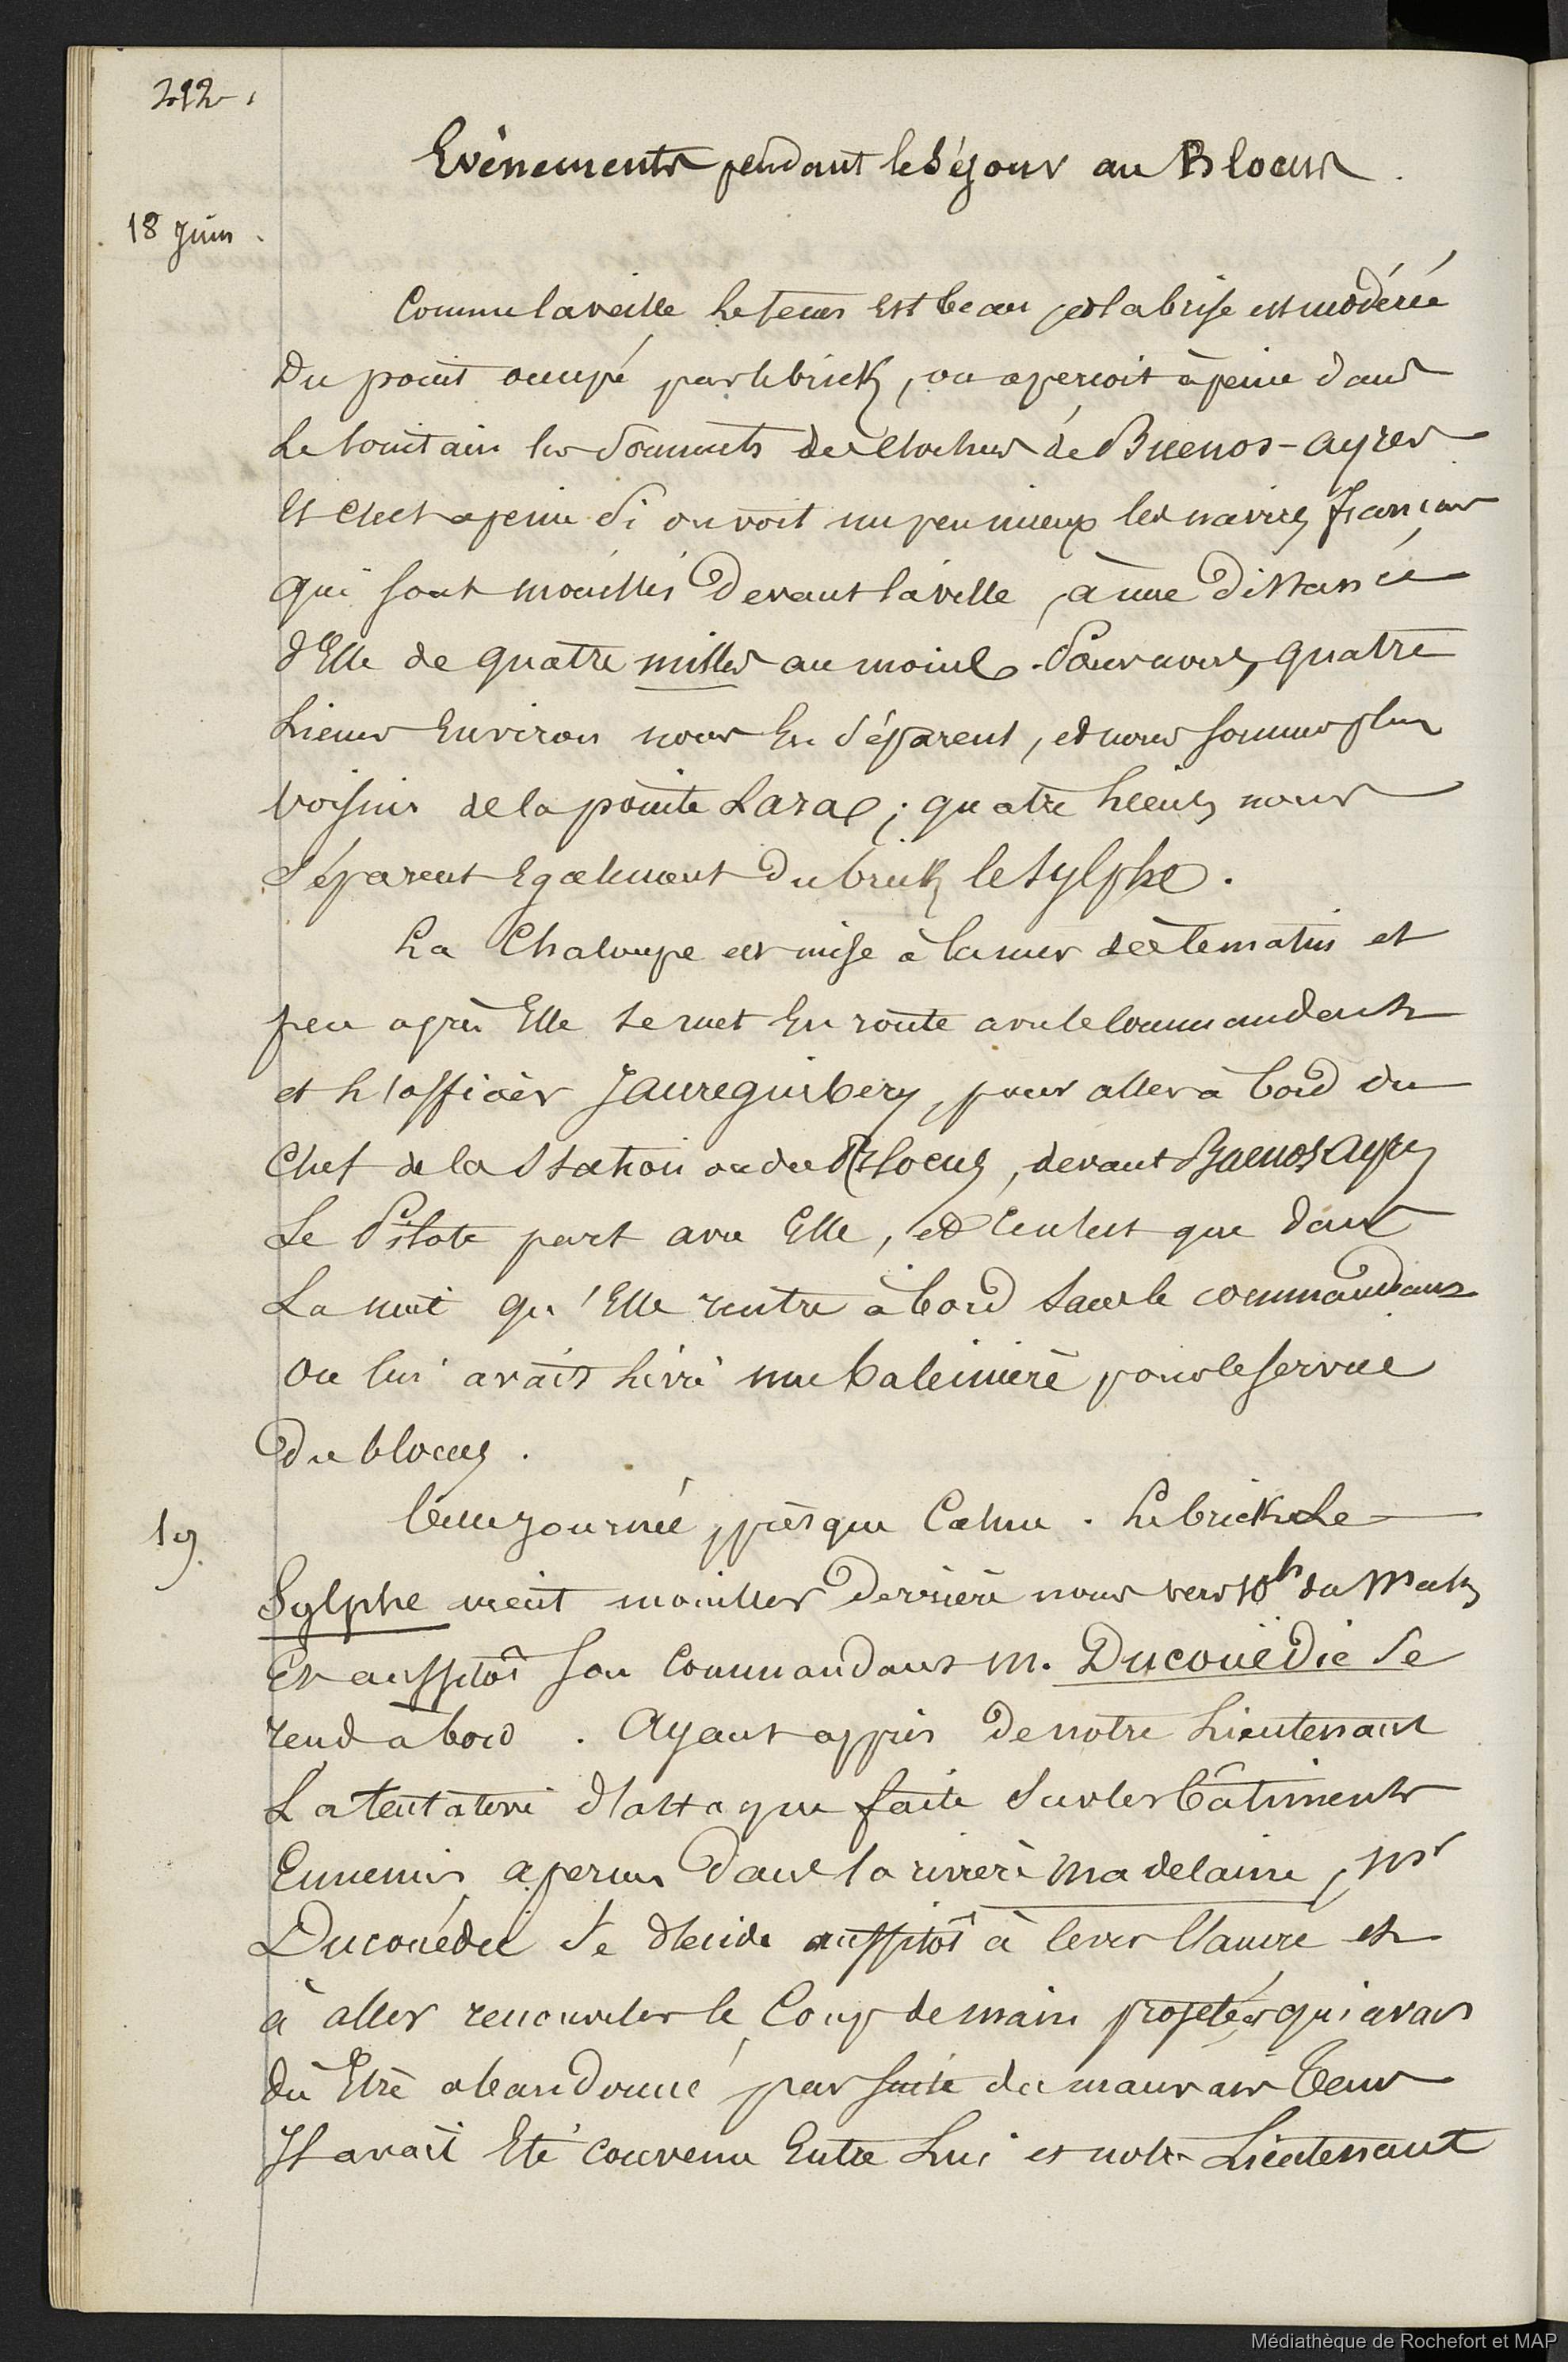 292.
Evènements pendant le Séjour au Blocus.
18 Juin.
Comme la veille le tems est beau et la brise est modérée
Du point occupé par le brick, on aperçoit à peine dans
Le lointain les Sommets des clochers de Buenos-Ayres
Et c'est à peine Si on voit un peu mieux les navires français
qui sont mouillés Devant la ville, à une Distance
d'Elle de quatre milles au moins. Pour nous, quatre
Lieues Environ nous En Séparent, et nous sommes plus
voisins de la pointe Lara; quatre lieues nous
Séparent Egalement du brick le Sylphe.
La Chaloupe est mise à la mer dès le matin et
peu après Elle se met En route avec le commandant
et l'officier Jaureguibery, pour aller à bord du
Chef de la Station ou du Blocus, devant Buenos Ayres
Le Pilote part avec Elle, et ce n'est que dans
La nuit qu'Elle rentre à bord sans le commandant
On lui avait livré une baleinière pour le service
Du blocus.
19.
belle journée, presque Calme. Le brick Le
Sylphe vient mouiller Derrière nous vers 10h du Matin
Et aussitôt son Commandant M. Ducouëdic Se
rend à bord. Ayant appris De notre Lieutenant
La tentative d'attaque faite Sur les bâtiments
Ennemis aperçus Dans la rivière Madelaine, Mr
Ducouédic Se décide aussitôt à lever l'ancre et
à aller renouveler le Coup de main projeté, qui avait
dû Etre abandonné par suite du mauvais tems
Il avait Eté convenu Entre Lui et notre Lieutenant
Médiathèque de Rochefort et MAP